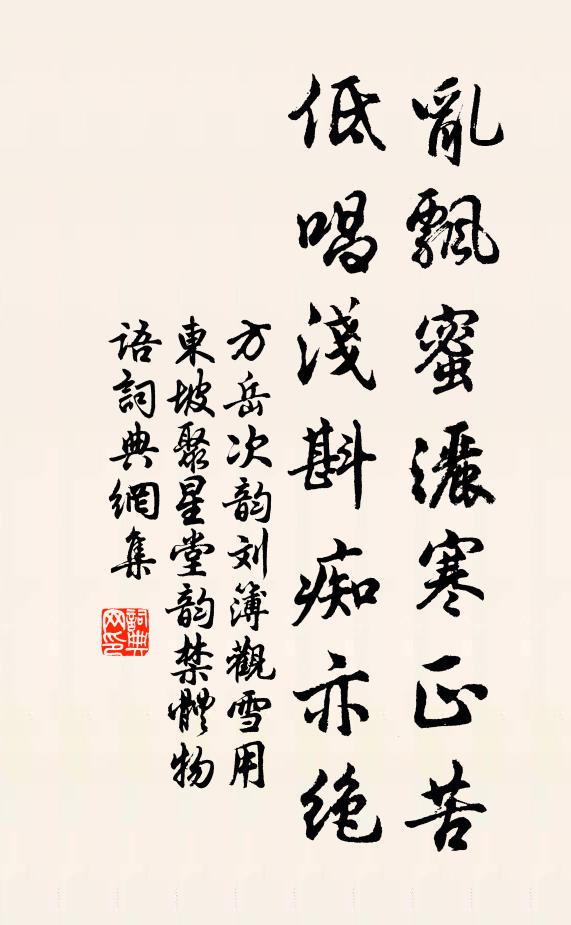 亂飄蜜灑寒正苦
低唱淺斟痴亦絶
方岳次韵刘簿觀雪用
東坡聚星堂韵禁體物
语詞典網集
詞典網印